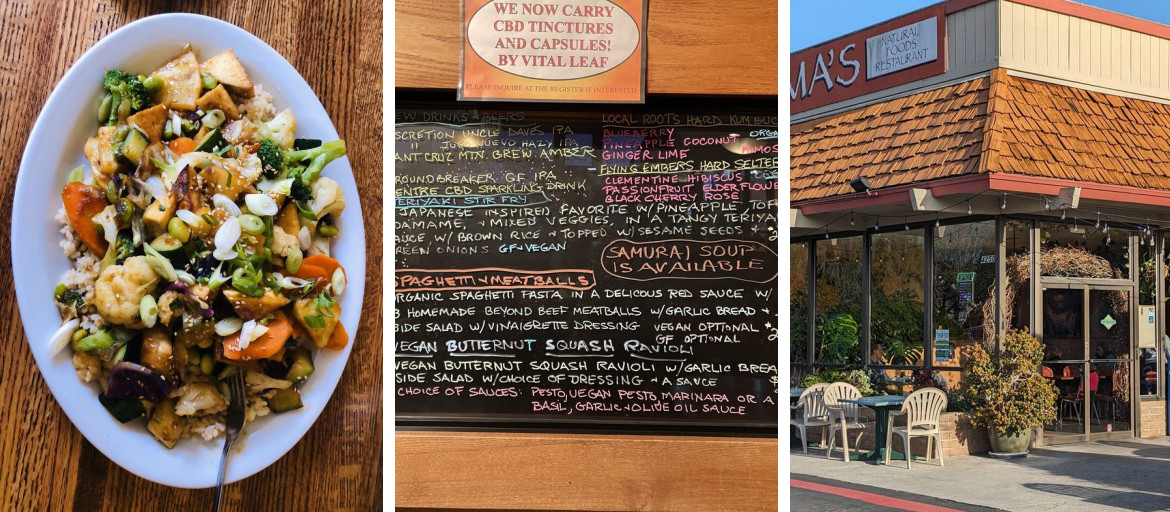 WE NOW CARRY
CBD TINCTURES
AND CAPSULES!
BY VITAL LEAF
PLEASE INQUIRE AT THE REGISTER IF INTERESTED
EW DRINKS & BEERS
SCRETION UNCLE DAVES IPA
" HAZY IPA
ANT CRUZ MTN. BREW. AMBER
ROUNDBREAKER GF IPA
ENTRE CBD SPARKLING DRINK
TERIYAKI STIR FRY
JAPANESE INSPIRED FAVORITE W/PINEAPPLE, TOF
DAMAME, & MIXED VEGGIES, IN A TANGY TERIYA
AUCE, W/ BROWN RICE & TOPPED W/ SESAME SEEDS &
REEN ONIONS GF & VEGAN
LOCAL ROOTS HARD KOMBUC
BLUEBERRY ORGA
PINEAPPLE COCONUT MIMOS
GINGER LIME
FLYING EMBERS HARD SELTER
CLEMENTINE HIBISCUS
PASSIONFRUIT ELDERFLOWE
BLACK CHERRY ROSE
SAMURAI SOUP
IS AVAILABLE
SPAGHETTI & MEATBALLS
ORGANIC SPAGHETTI PASTA IN A DELICOUS RED SAUCE W/
3 HOMEMADE BEYOND BEEF MEATBALLS W/GARLIC BREAD +
SIDE SALAD W/VINAIGRETTE DRESSING VEGAN OPTIONAL
GF OPTIONAL
VEGAN BUTTERNUT SQUASH RAVIOLI
VEGAN BUTTERNUT SQUASH RAVIOLI W/GARLIC BREA
SIDE SALAD W/CHOICE OF DRESSING & A SAUCE
CHOICE OF SAUCES: PESTO, VEGAN PESTO, MARINARA OR A
BASIL, GARLIC & OLIVE OIL SAUCE
MA'S
NATURAL
FOODS
RESTAURANT